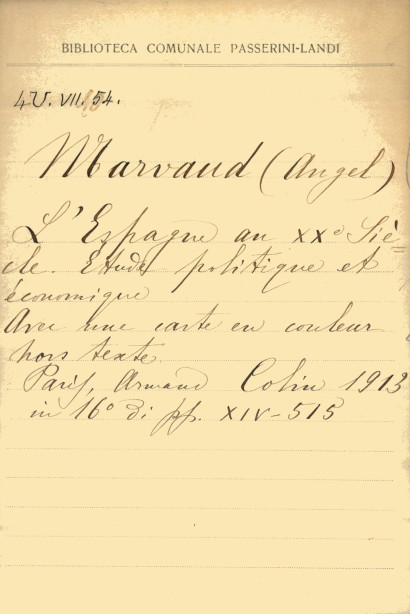 BIBLIOTECA COMUNALE PASSERINI-LANDI
4U. VII. 54.
Marvaud (Angel)
L'Espagne au XXe Siè=
cle. Etude politique et
économique
Avec une carte en couleur
hors texte.
Paris, Armand Colin 1913
in 16° di pp. XIV-515